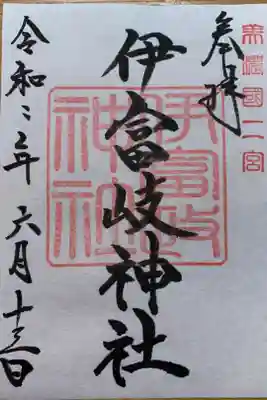 美濃國二宮
奉拝
伊富岐神社
伊富岐神社
令和二年六月十三日